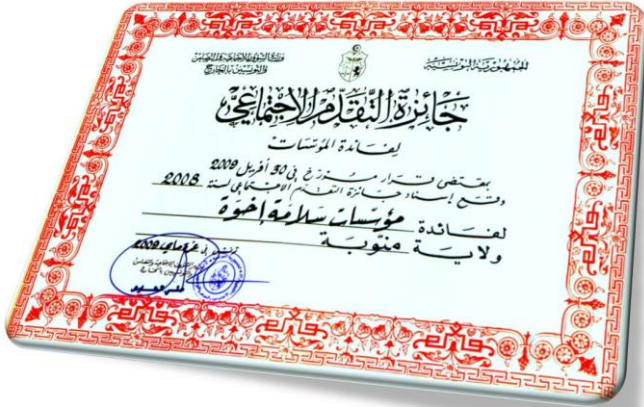 الجمهورية التونسية
وزارة الشؤون الاجتماعية والتضامن
والتونسيين بالخارج
جائزة التقدم الاجتماعي
لفائدة المؤسسات
بمقتضى قرار مؤرخ في 30 أفريل 2009
وقع إسناد جائزة التقدم الاجتماعي لسنة 2008
لفائدة مؤسسات سلامة إخوة
ولاية منوبة
تونس في غرة ماي 2009